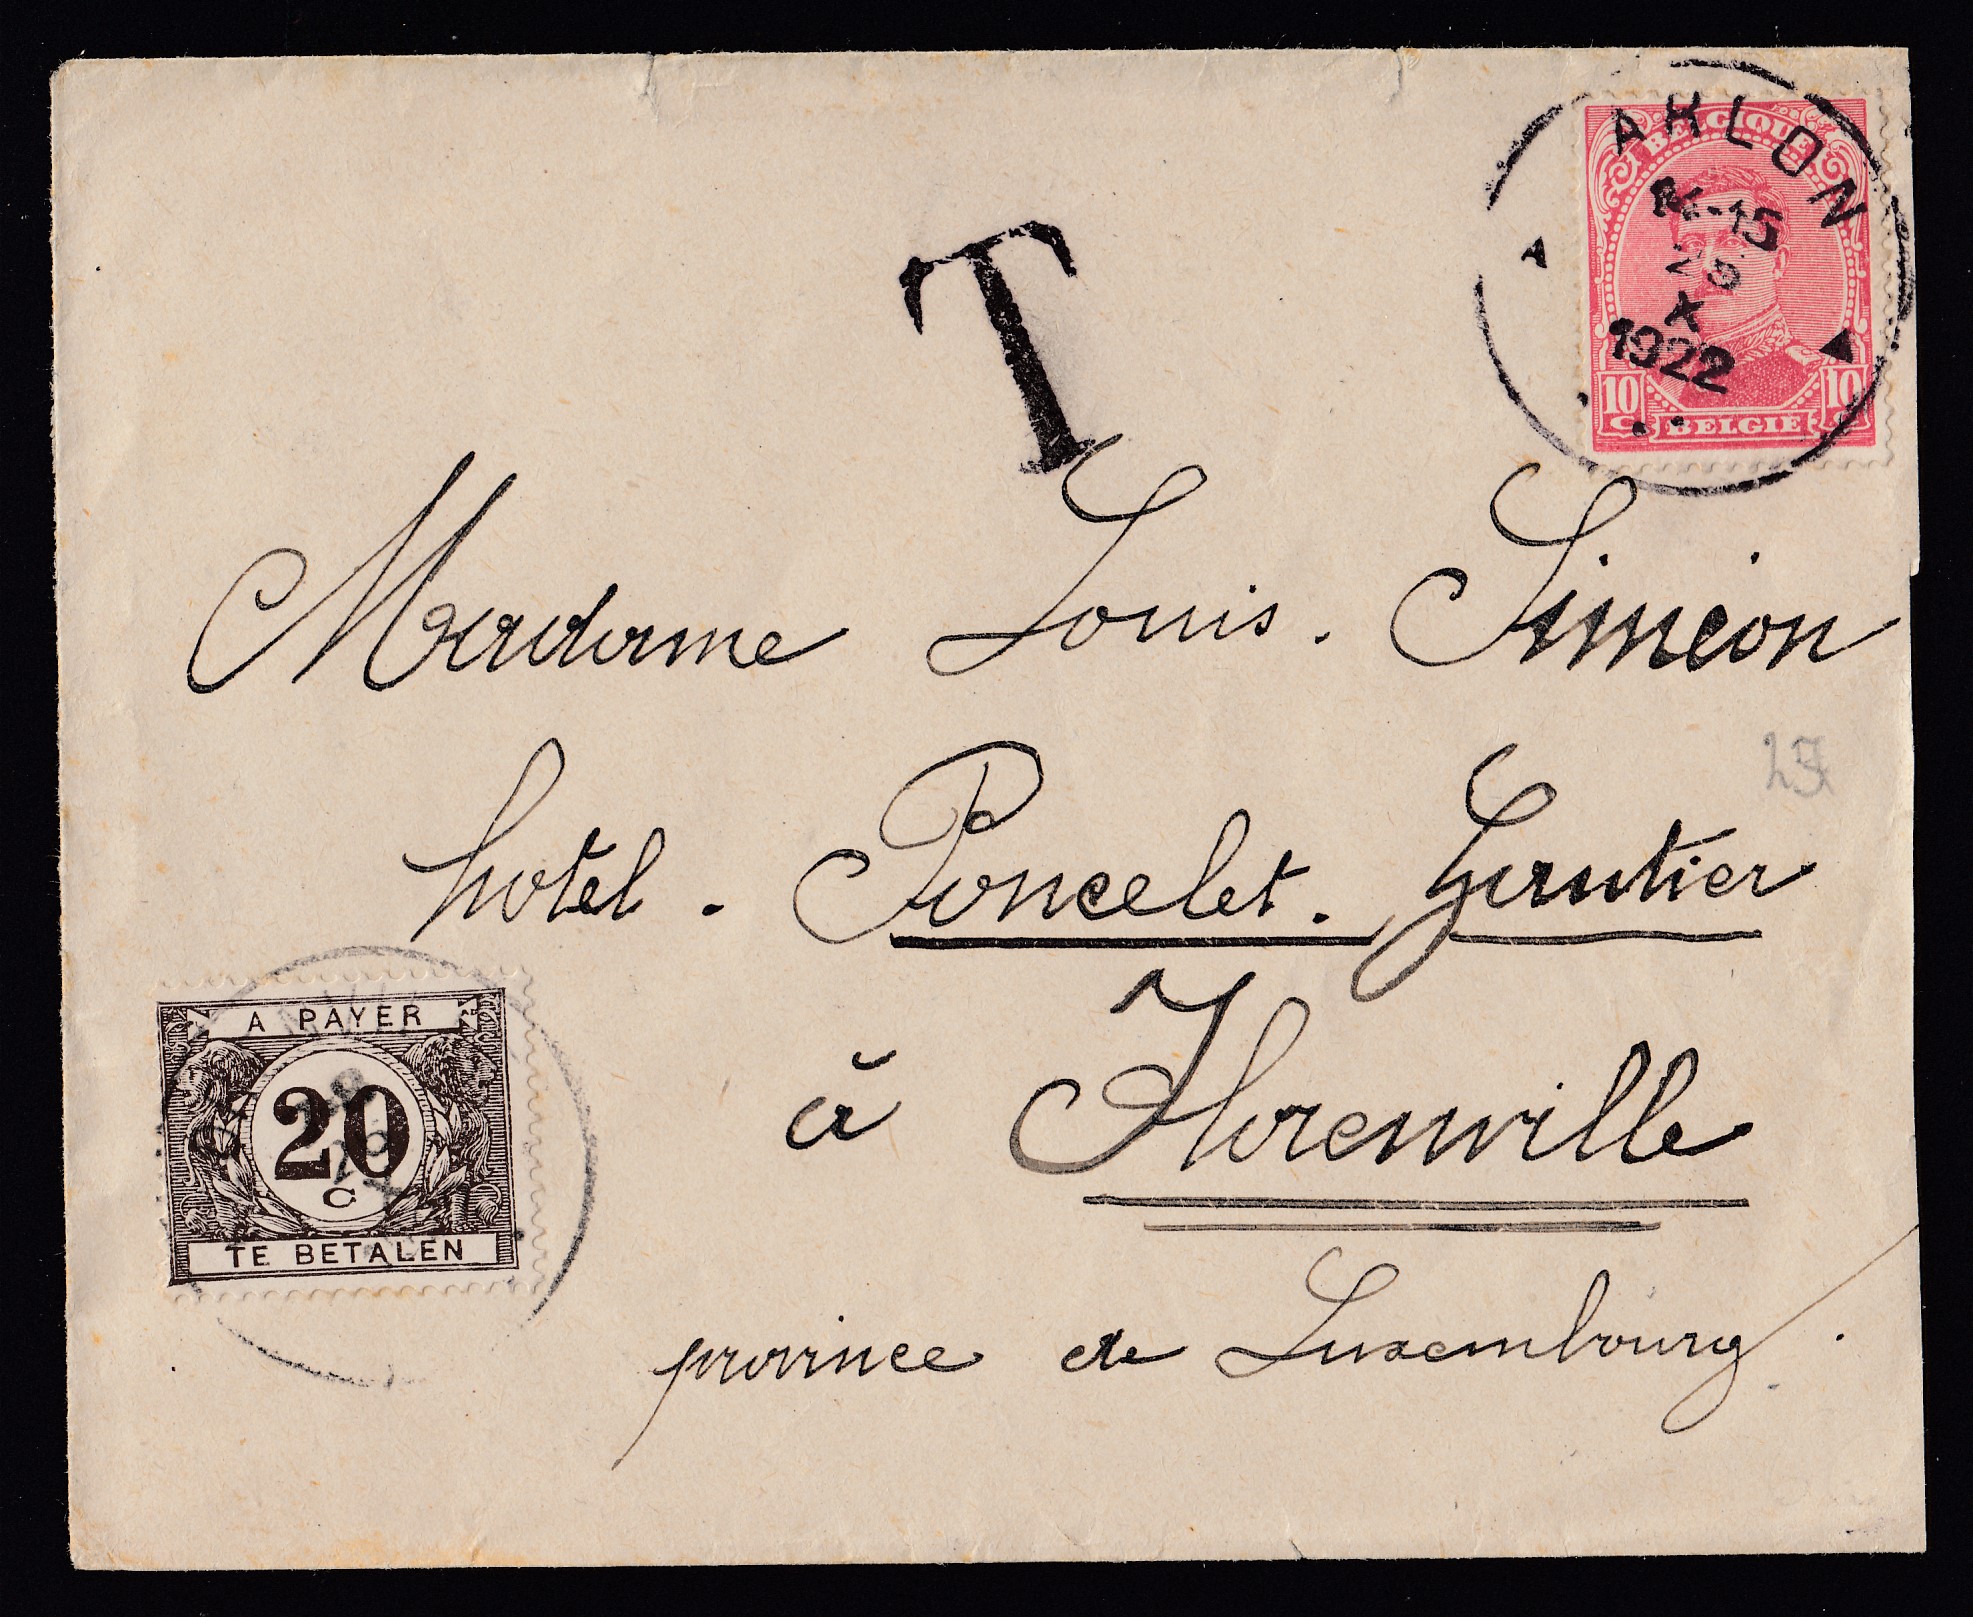 ARLON
14-15
X
1922
A
BELGIQUE
10 C 10 C
BELGIË
T
Madame Louis. Siméon
hotel. Poncelet. Gautier
à Florenville
province de Luxembourg.
A PAYER
20
C
TE BETALEN